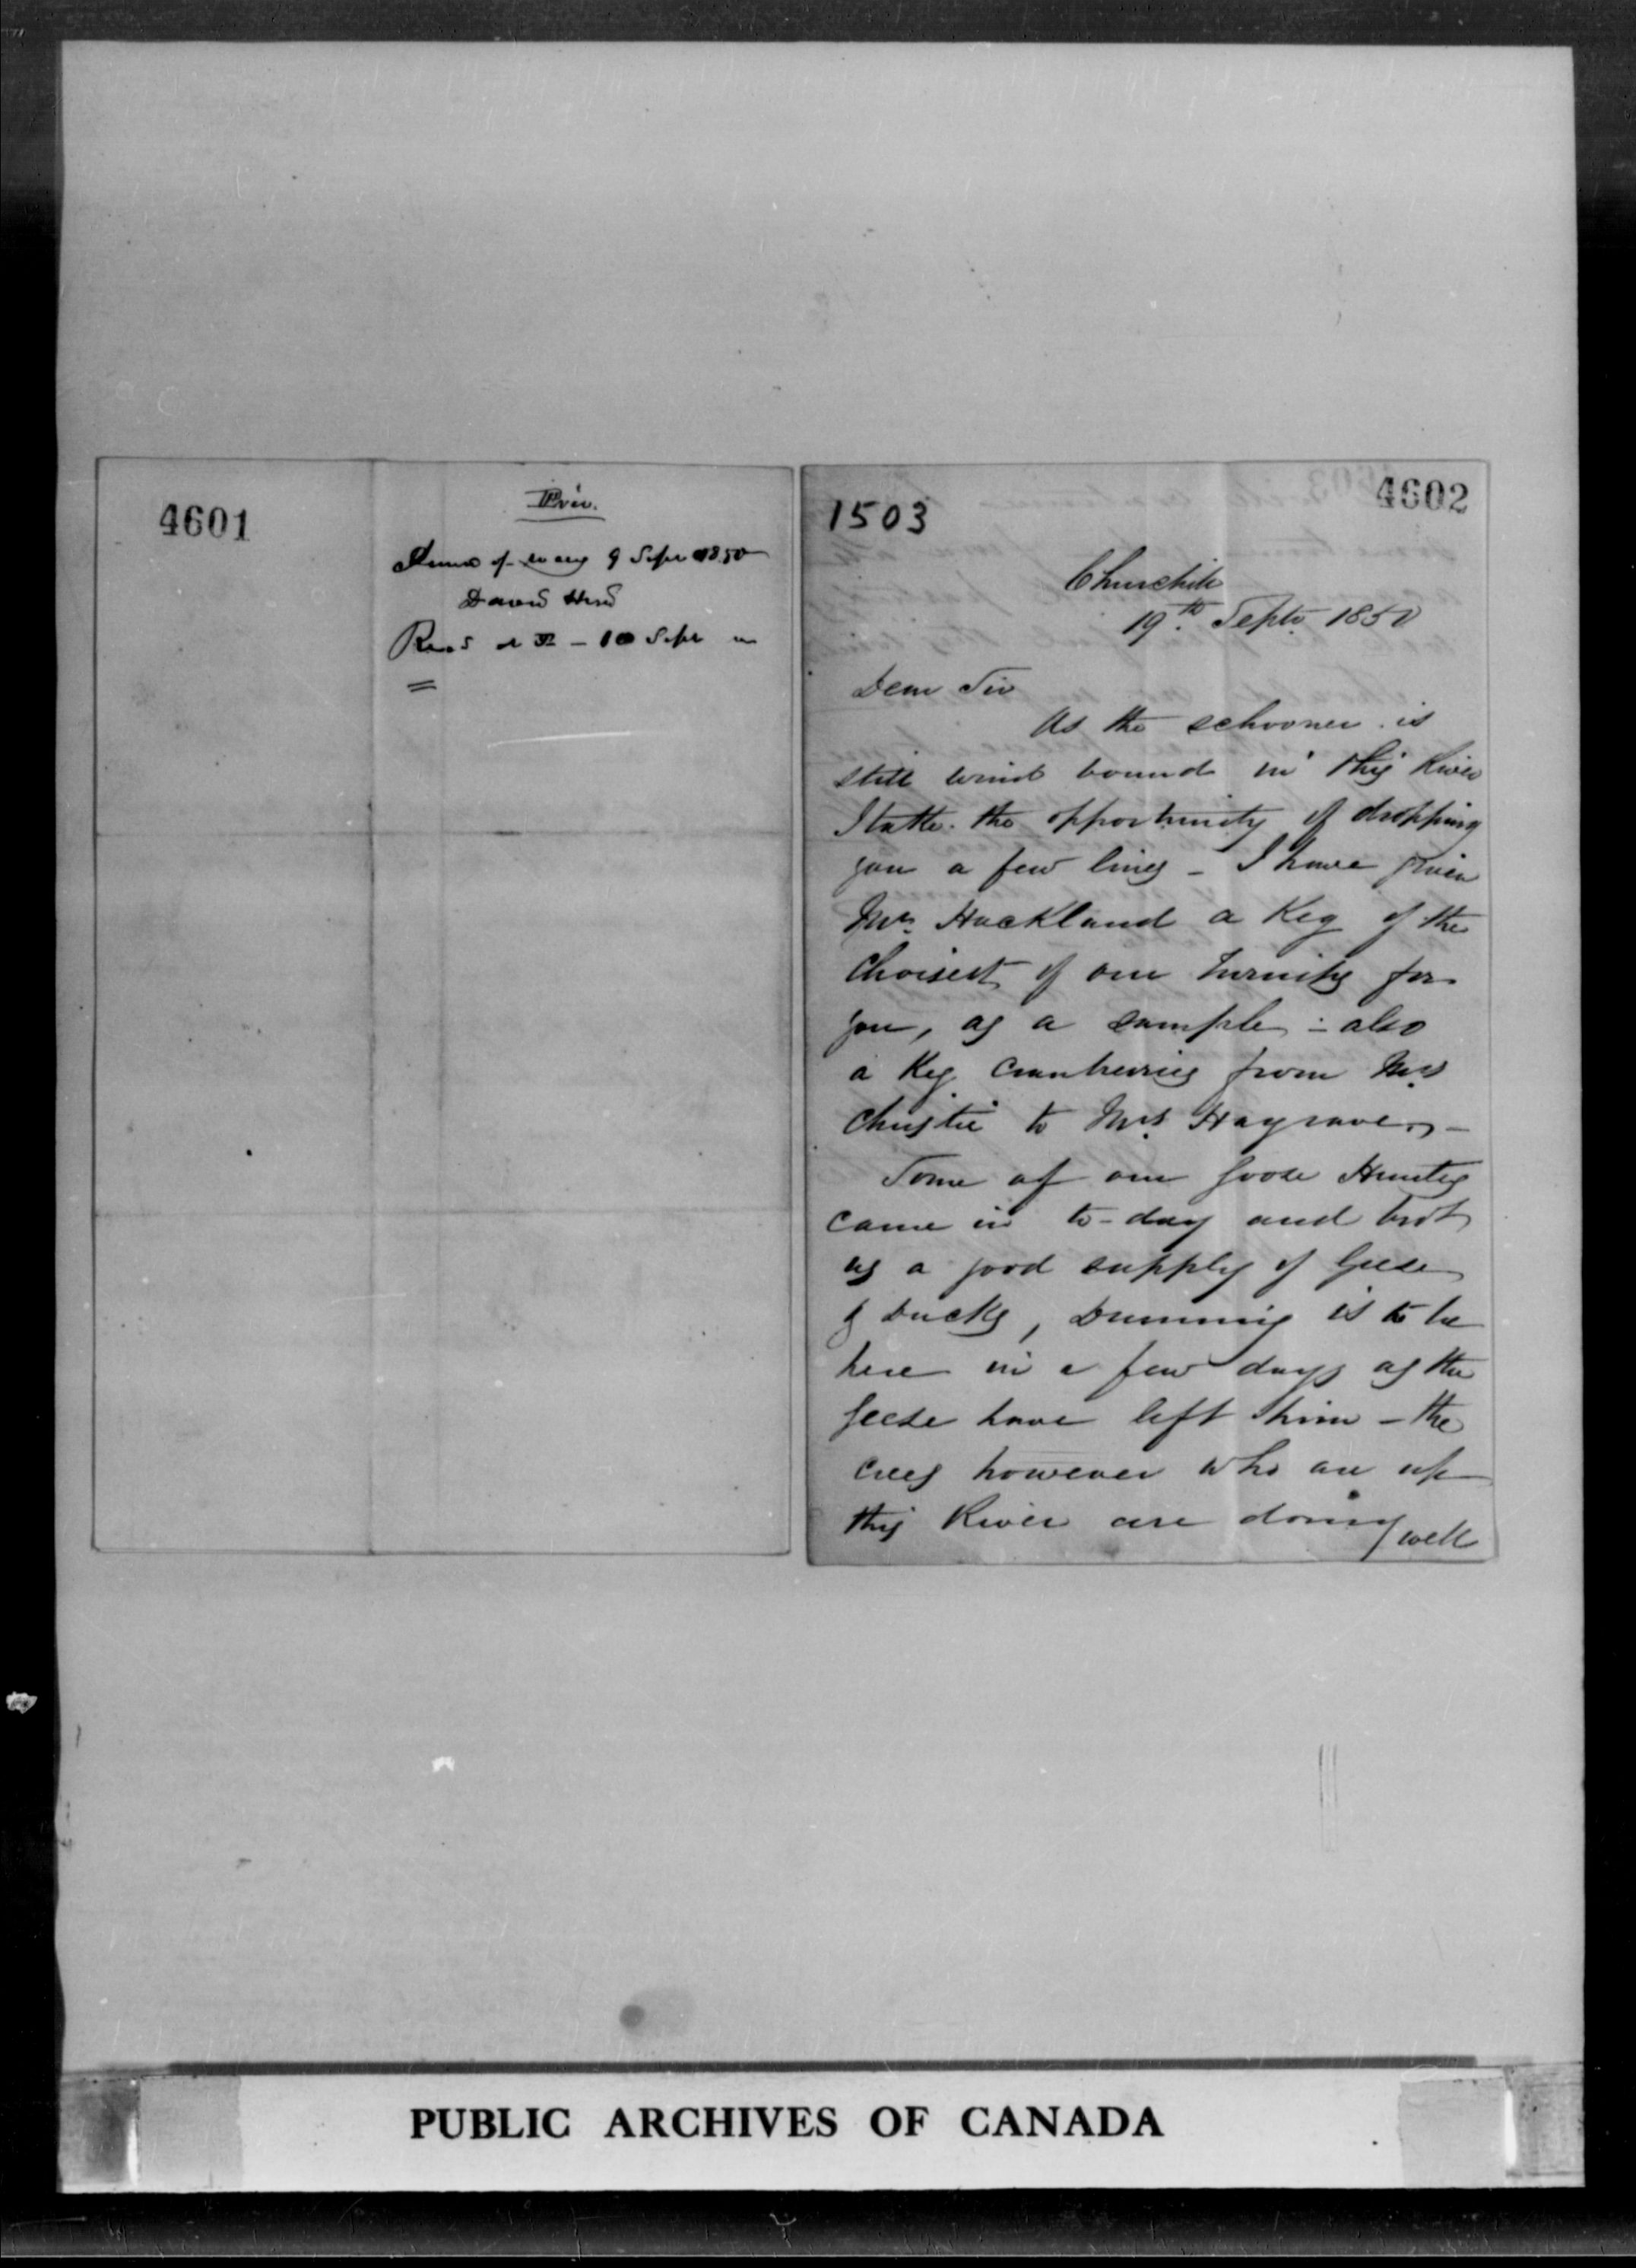 4601
Priv.
9 Sept 1850
David Herd
Recd at YF – 10 Sept
4602
1503
Churchill
19th Septr 1850
Dear Sir
As the schooner is
still wind bound in this River
I take the opportunity of dropping
you a few lines – I have given
Mr. Hackland a Keg of the
Choisest of our turnips for
you, as a sample – also
a Keg Cranberries from Mrs
Christie to Mrs Hargrave. –
Some of our Goose Hunters
came in to-day and brot
us a good supply of Geese
& Ducks, Dunning is to be
here in a few days as the
Geese have left him – the
crees however who are up
this River are doing well
PUBLIC ARCHIVES OF CANADA